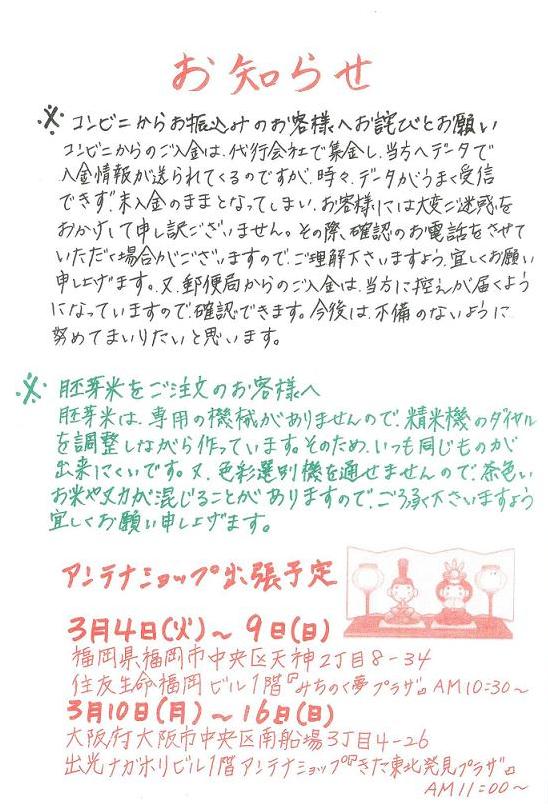 お知らせ
※ コンビニからお振込みのお客様へお詫びとお願い
コンビニからのご入金は、代行会社で集金し、当方へデータで
入金情報が送られてくるのですが、時々、データがうまく受信
できず、未入金のままとなってしまい、お客様には大変ご迷惑を
おかけして申し訳ございません。その際、確認のお電話をさせて
いただく場合がございますので、ご理解下さいますよう、宜しくお願い
申し上げます。又、郵便局からのご入金は、当方に控えが届くよう
になっていますので、確認できます。今後は、不備のないように
努めてまいりたいと思います。
※ 胚芽米をご注文のお客様へ
胚芽米は、専用の機械がありませんので、精米機のダイヤル
を調整しながら作っています。そのため、いつも同じものが
出来にくいです。又、色彩選別機を通せませんので、茶色い
お米やヌカが混じることがありますので、ご了承下さいますよう
宜しくお願い申し上げます。
アンテナショップ出張予定
3月4日(火)～9日(日)
福岡県福岡市中央区天神2丁目8-34
住友生命福岡ビル1階『みちのく夢プラザ』AM10:30～
3月10日(月)～16日(日)
大阪府大阪市中央区南船場3丁目4-26
出光ナガホリビル1階アンテナショップ『きた東北発見プラザ』
AM11:00～